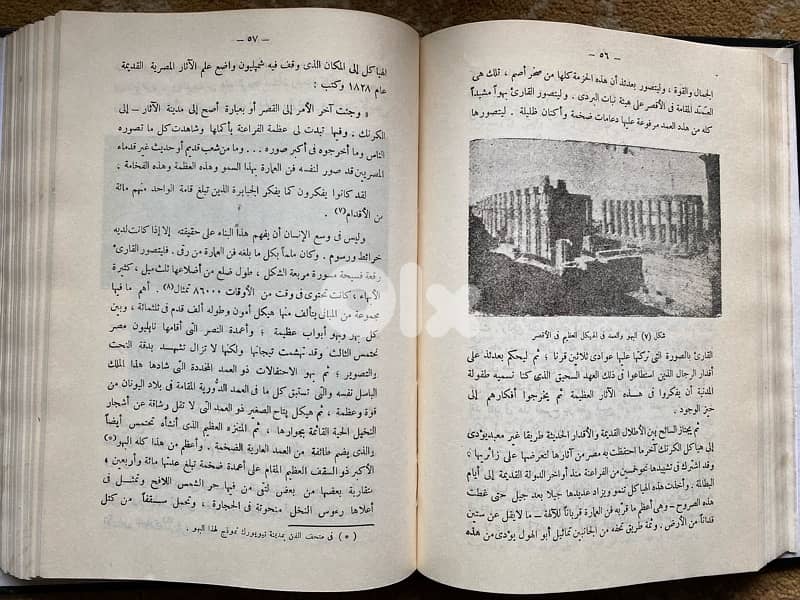 — ٥٦ —
الجمال والقوة ، وليتصور بعدئذ أن هذه الحزمة كلها من صخر أصم ، تلك هى
العمد المقامة فى الأقصر على هيئة نبات البردى . وليتصور القارئ بهواً مشيداً
كله من هذه العمد مرفوعة عليها دعامات ضخمة وأكنان ظليلة . ليتصورها
شكل (٧) البهو والعمد فى الهيكل العظيم فى الأقصر
القارئ بالصورة التى تركتها عليها عوادى ثلاثين قرنا ؛ ثم ليحكم بعدئذ على
أقدار الرجال الذين استطاعوا فى ذلك العهد السحيق الذى كنا نسميه طفولة
المدنية أن يفكروا فى هذه الآثار العظيمة ثم يخرجوا أفكارهم إلى
حيز الوجود .
ثم يجتاز السائح بين الأطلال القديمة والأقذار الحديثة طريقا غير معبد يؤدى
إلى هياكل الكرنك آخر ما احتفظت به مصر من آثارها لتعرضها على زائريها ؛
وقد اشترك فى تشييدها نحو خمسين من الفراعنة منذ أواخر الدولة القديمة إلى أيام
البطالمة . وأخذت هذه الهياكل تنمو ويزداد عديدها جيلا بعد جيل حتى غطت
هذه الصروح – وهى أعظم ما قربه فن العمارة قرباناً للآلهة – ما لا يقل عن ستين
فداناً من الأرض . وثمة طريق تحفه من الجانبين تماثيل أبو الهول يؤدى من هذه
— ٥٧ —
الهياكل إلى المكان الذى وقف فيه شمپليون واضع علم الآثار المصرية القديمة
عام ١٨٢٨ وكتب :
« وجئت آخر الأمر إلى القصر أو بعبارة أصح إلى مدينة الآثار – إلى
الكرنك . وفيها تبدت لى عظمة الفراعنة بأكملها وشاهدت كل ما تصوره
الناس وما أخرجوه فى أكبر صوره . . . وما من شعب قديم أو حديث غير قدماء
المصريين قد صور لنفسه فن العمارة بهذا السمو وهذه العظمة وهذه الفخامة ،
لقد كانوا يفكرون كما يفكر الجبابرة الذين تبلغ قامة الواحد منهم مائة
من الأقدام(٧) .
وليس فى وسع الإنسان أن يفهم هذا البناء على حقيقته إلا إذا كانت لديه
خرائط ورسوم . وكان ملماً بكل ما بلغه فن العمارة من رقى . فليتصور القارئ
رقعة فسيحة مسورة مربعة الشكل ، طول ضلع من أضلاعها ثلث ميل ، كثيرة
الأبهاء ، كانت تحتوى فى وقت من الأوقات ٨٦٠٠٠ تمثال(٨) . أهم ما فيها
مجموعة من المبانى يتألف منها هيكل أمون وطوله ألف قدم فى ثلثمائة ، وبين
كل بهو وبهو أبواب عظيمة ؛ وأعمدة النصر التى أقامها ناپليون مصر
تحتمس الثالث وقد تهشمت تيجانها ولكنها لا تزال تشهد بدقة النحت
والتصوير ؛ ثم بهو الاحتفالات ذو العمد المحددة التى شادها هذا الملك
الباسل نفسه والتى تستبق كل ما فى العمد الدُّورية المقامة فى بلاد اليونان من
قوة وعظمة ، ثم هيكل پتاح الصغير ذو العمد التى لا تقل رشاقة عن أشجار
النخيل الحية القائمة بجوارها ، ثم المتنزه العظيم الذى أنشأه تحتمس أيضاً
والذى يضم طائفة من العمد العارية الضخمة . وأعظم من هذا كله البهو(*)
الأكبر ذو السقف العظيم المقام على أعمدة ضخمة تبلغ عدتها مائة وأربعين ،
متقاربة بعضها من بعض لتقى من فيها حر الشمس اللافح وتتمثل فى
أعلاها رءوس النخل منحوتة فى الحجارة ، وتحمل سقفاً من كتل
(*) فى متحف الفن بمدينة نيويورك نموذج لهذا البهو .
olx